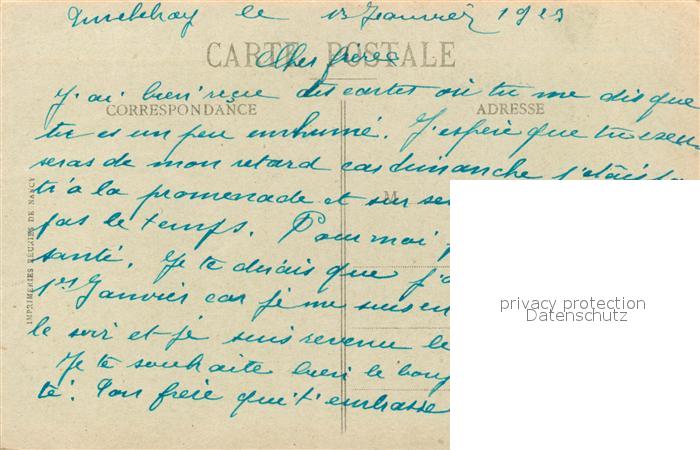 le 13 Janvier 1923
CARTE POSTALE
Cher frère
J'ai bien reçue des cartes où tu me dis que
CORRESPONDANCE
ADRESSE
tu es un peu enrhumé. J'espère que tu
seras de mon retard car dimanche j'étais
à la promenade et sur
M
pas le temps. Pour moi
santé. Je te dirais que j'
1er Janvier car je me suis en
le soir et je suis revenu le
Je te souhaite bien le bon
té. Ton frère qui t'embrasse
IMPRIMERIES RÉUNIES DE NANCY
privacy protection
Datenschutz